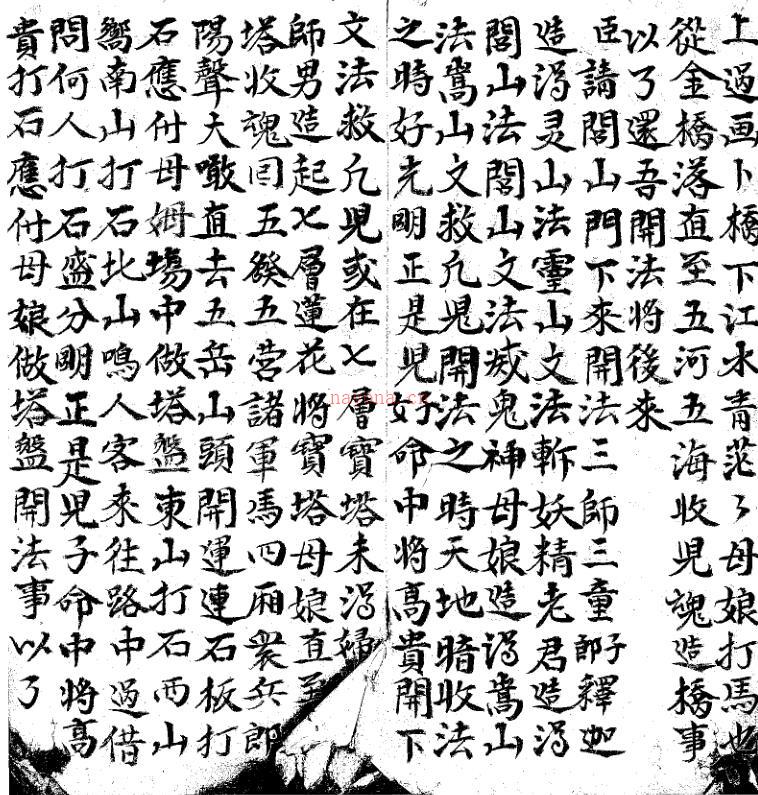 上過画卜橋下江水青茫々母娘打馬也
從金橋落直至五河五海收児魂造橋事
以了還吾開法将後來
臣請閭山門下來開法三師三童子郎釋迦
造得灵山法靈山文法斬妖精老君造得
閭山法閭山文法滅鬼神母娘造得嵩山
法嵩山文救凢児開法之時天地暗收法
之時好光明正是児好命中将髙貴開下
文法救凢児或在七層寶塔未得婦
師男造起七層蓮花将寶塔母娘直至
塔收魂囙五飬五营諸軍馬四厢衆兵郎
陽聲大噉直去五岳山頭開運連石板打
石應付母姆塲中做塔盤東山打石西山
嚮南山打石北山鳴人客來往路中過借
問何人打石盛分明正是児子命中将髙
貴打石應付母娘做塔盤開法事以了
navana.cn